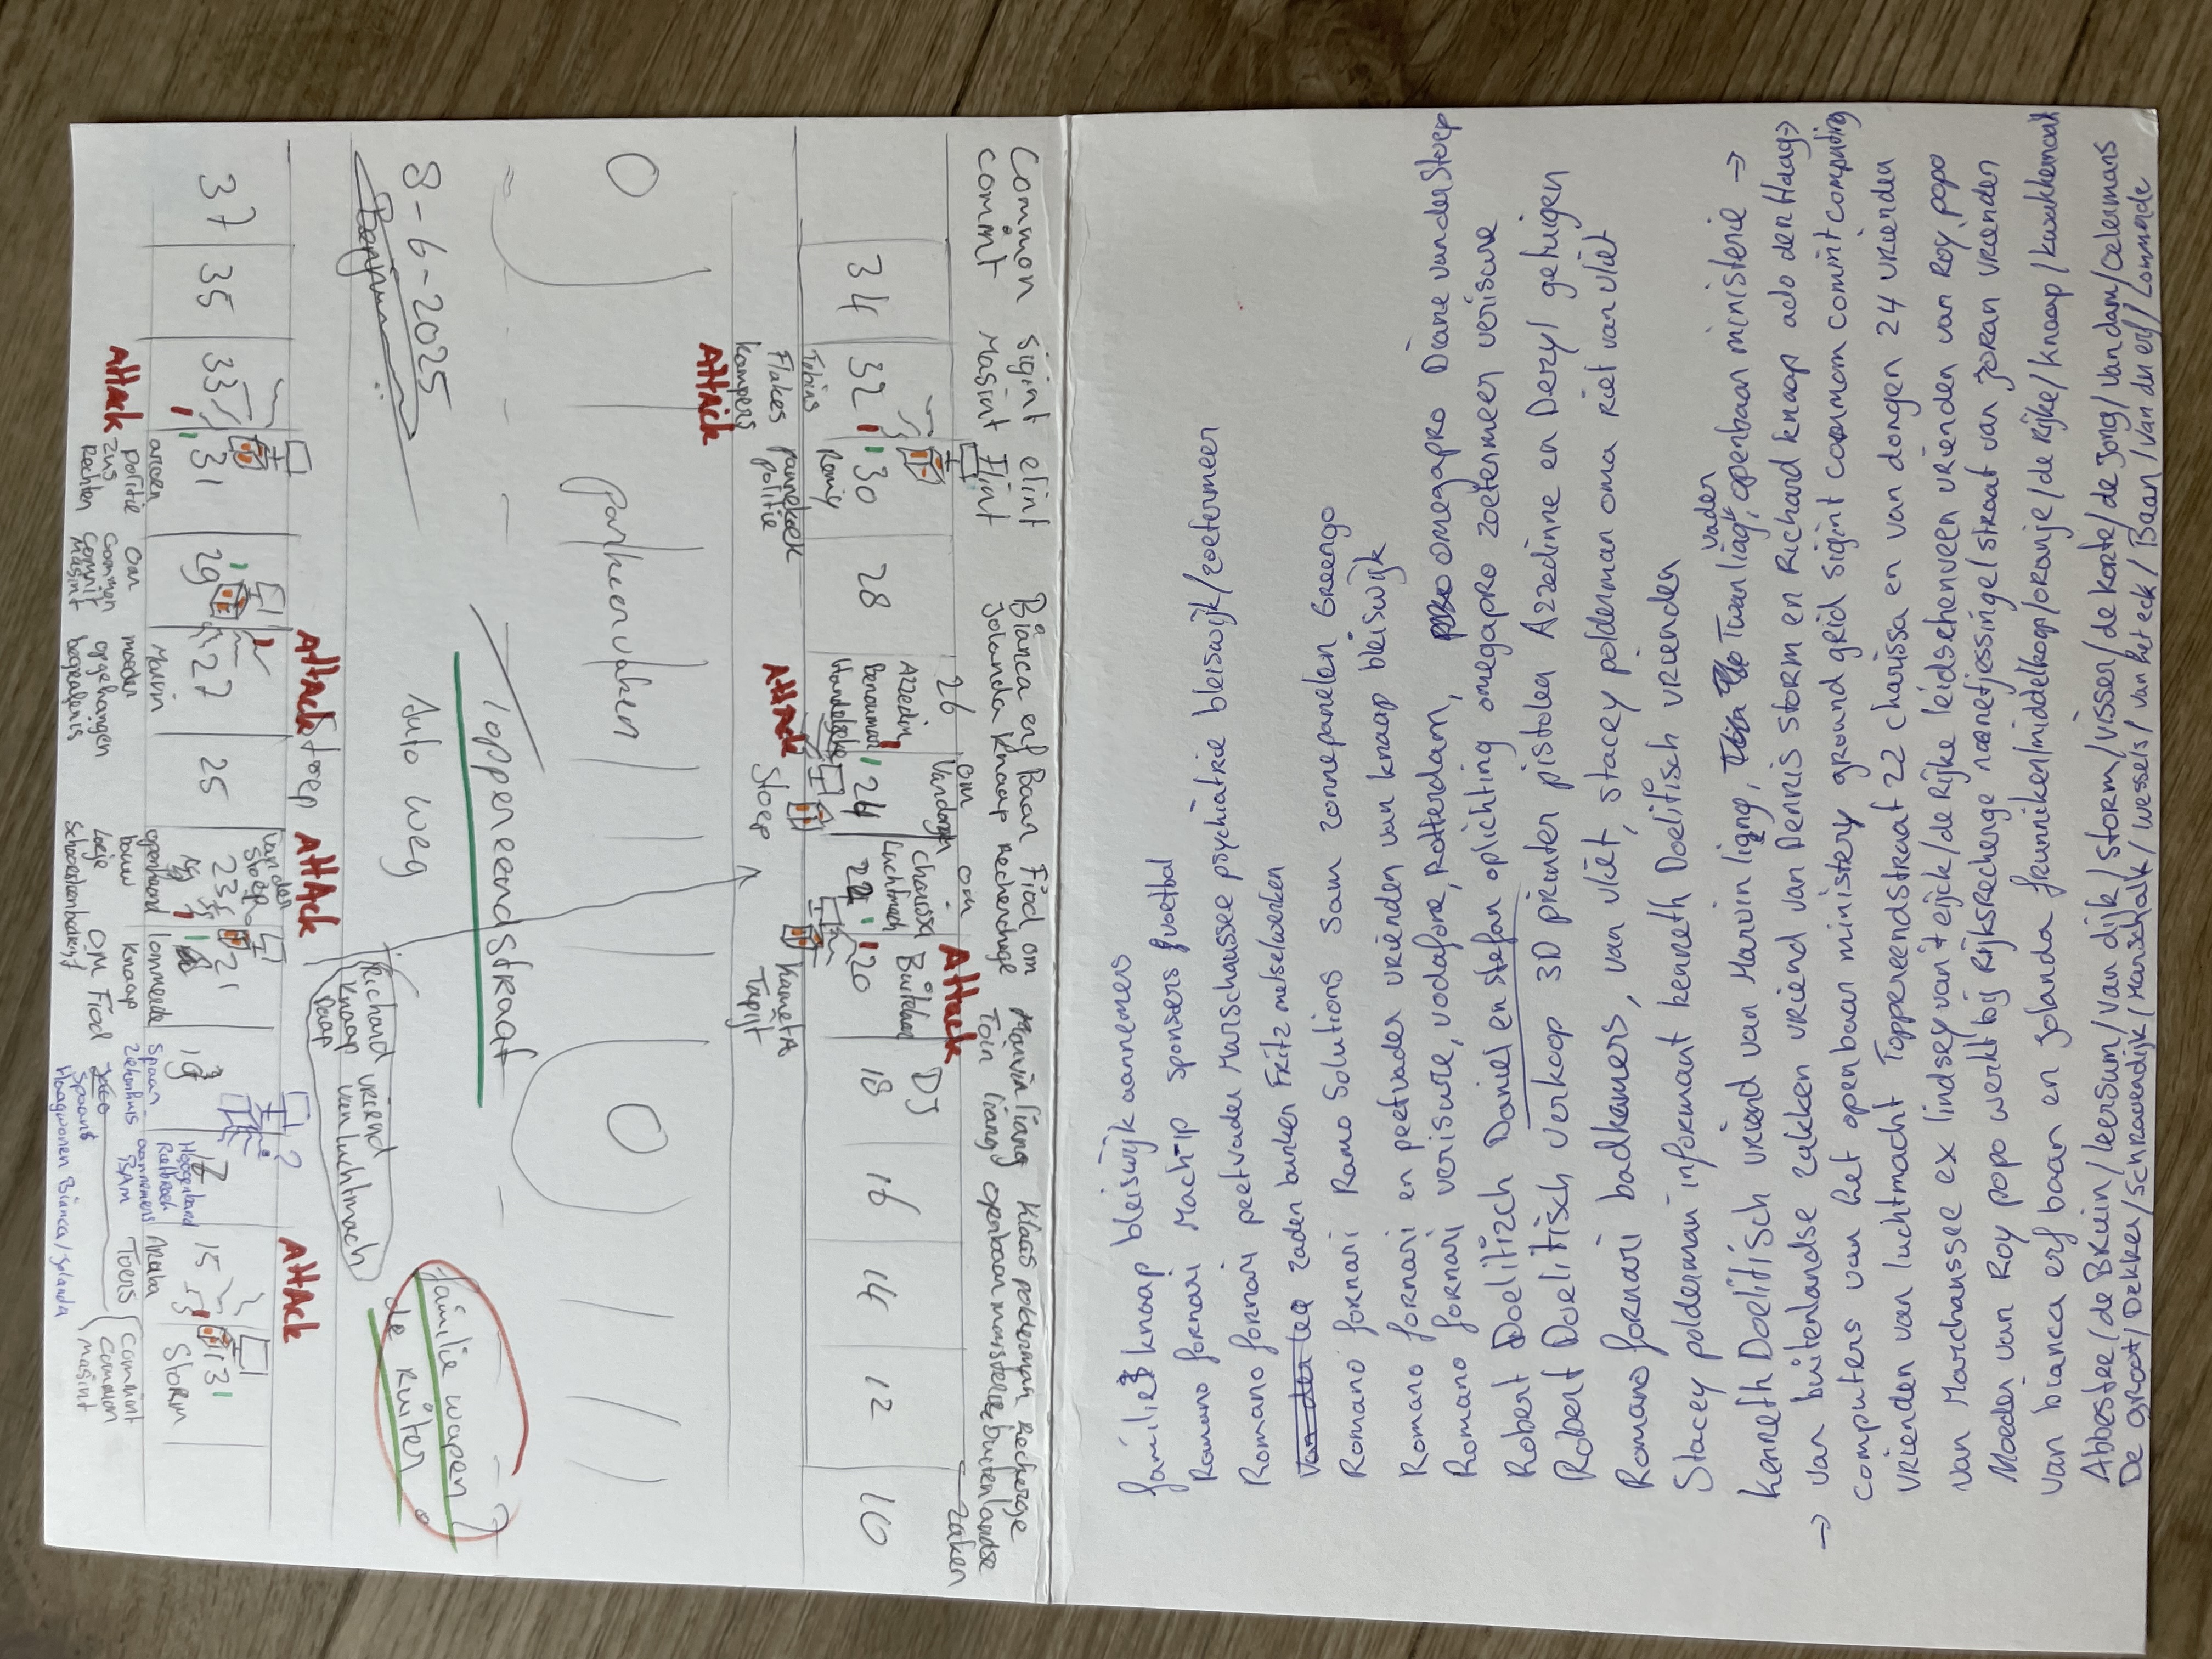 Common sigint elint
comint Masint Flint
Bianca erf Baan Fiod om
Jolanda Knaap Recherche
Marvin liang Klaas polderman Recherge
Toin liang openbaan ministerie buitenlandse
zaken
34 32 30 28 26 24 22 20 18 16 14 12 10
Azzedin
om
van dongen
om
Charissa
Luchtmacht
Buitelaar
DJ
Attack
Tobias
Flakes
kampers
Romy
pannekoek
politie
Attack
Attack
Stoep
Kamera
Tapijt
O
parkeervakken
O
Toppereendstraat
Auto weg
8-6-2025
familie wapen?
de Ruiter.
Richard vriend
Knaap van luchtmach
Daap
Stoep
Attack
Attack
Attack
Attack
37 35 33 31 29 27 25 23 21 19 17 15 13
aroen
politie
zus
Rachten
Oar
Common
Comint
masint
Marvin
moeder
opgehangen
begrafenis
van der
Stoep
opgehand
bouw
loeje
schoonmaakbedrijf
lonneede
Knaap
OM Fiod
Spaan
ziekenhuis
Spaans
Hoogeland
Rietbroek
aannemers
BAM
Haagwonen Bianca/Jolanda
Ariaba
Toers
Storm
Commint
Common
masint
familie knaap bleiswijk aannemers
Romano fornari Mach-ip sponsers fuoetbal
Romano fornari peetvader Marschaussee psychiatrie bleiswijk/zoetermeer
zaden bunker Fritz metselwerken
Romano fornari Ramo Solutions Sam zonnepanelen Greengo
Romano fornari en peetvader vrienden van knaap bleiswijk
Romano fornari verisure, vodafone, Rotterdam, omegapro Diane van der Stoep
Robert Doelitzch Daniel en stefan oplichting omegapro zoetermeer verisure
Robert Doelitisch verkoop 3D printer pistolen Azzedinne en Deryl getuigen
Romano fornari badkamers, van vliet, stacey polderman oma Riet van vliet
Stacey polderman informant kenneth Doelitisch vrienden
kenneth Doelitisch vriend van Marvin ligng, Twan liag" vader openbaan ministerie →
→ van buitenlandse zakken vriend van Dennis storm en Richard knaap ado den Haag→
computers van het openbaar ministery ground grid sigint common commit computing
vrienden van luchtmacht Toppereendstraat 22 charissa en van dongen 24 vrienden
van Marchaussee ex lindsey van 't eijck/de Rijke leidschenveen vrienden van Roy popo
Moeder van Roy popo werkt bij Rijksrecherge nanetjessingel straat van Joran vrienden
van bianca erf baan en Jolanda frunniken/middelkop/oranje/de Rijke/knaap/kwakkernaat
Abbestee/de Bruin/leersum/van dijk/storm/visser/de korte/de jong/van dam/oelemans
De groot/Dekker/schravendijk/Marschalk/wessels/van het eck/Baan/van der erf/Lonneede